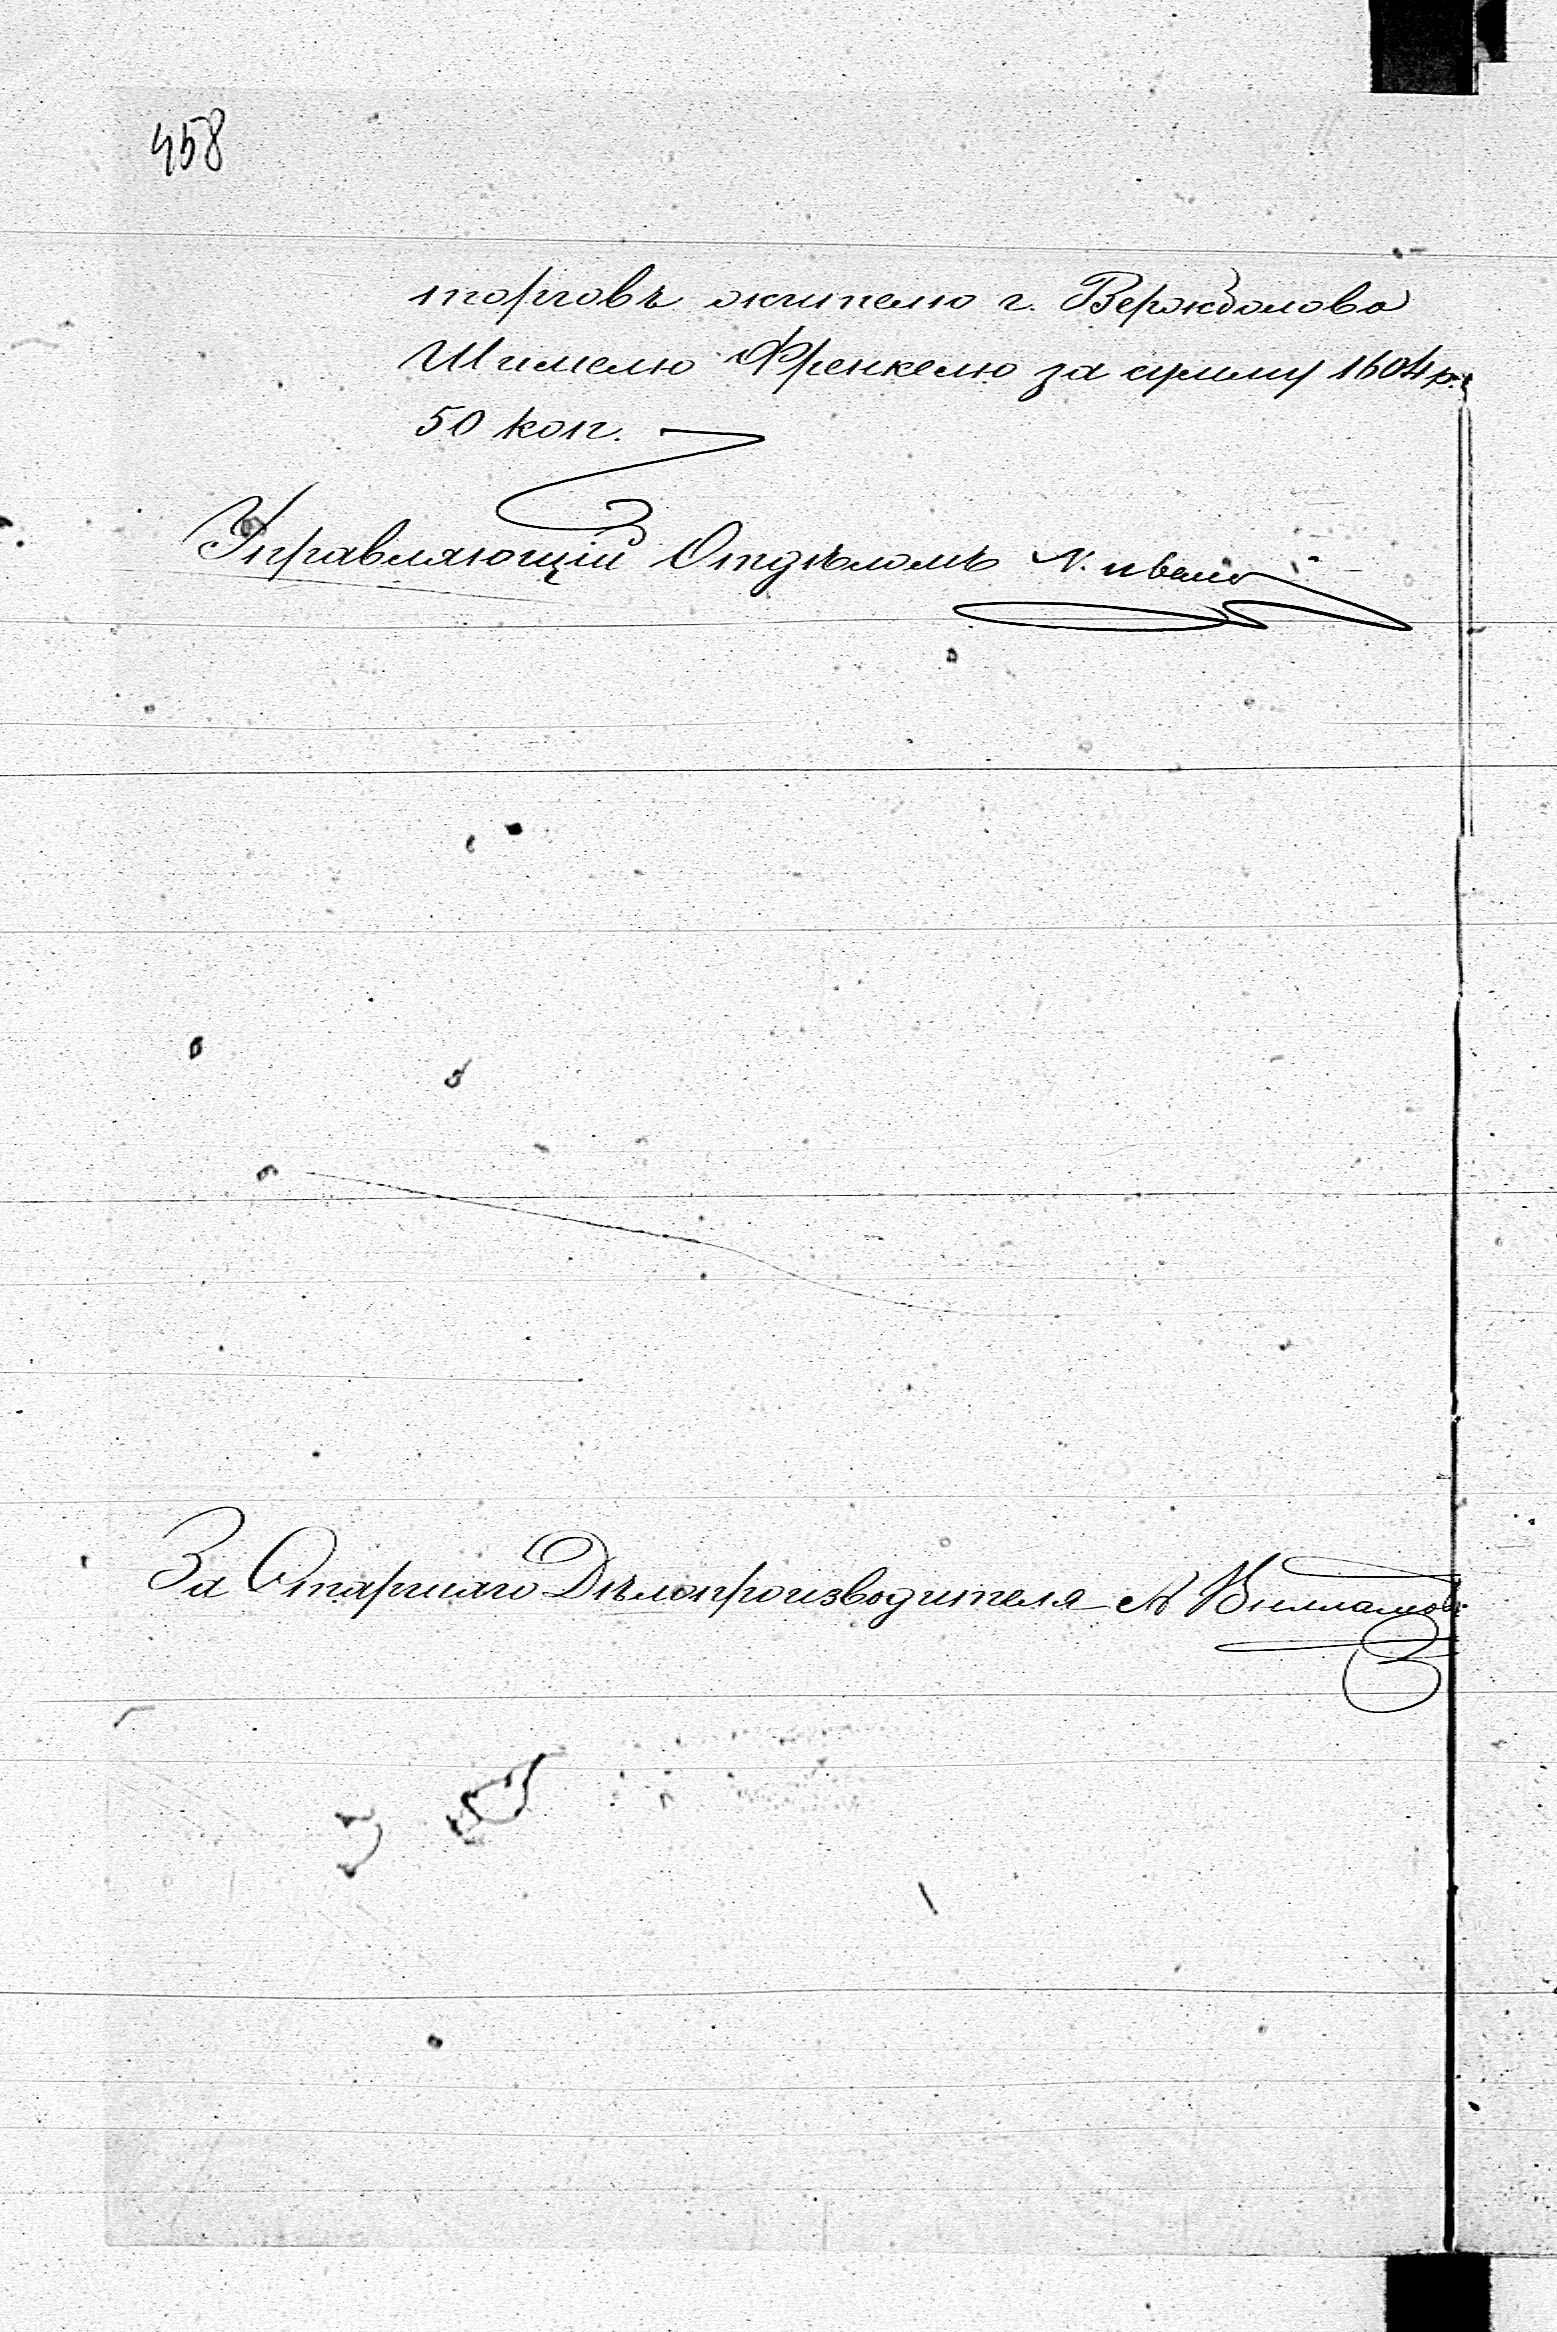 458
торговъ жителю г. Вержболова
Шимелю Френкелю за сумму 1604 р.
50 коп.
Управляющій Отдѣломъ
За Старшаго Дѣлопроизводителя А Вилламовъ